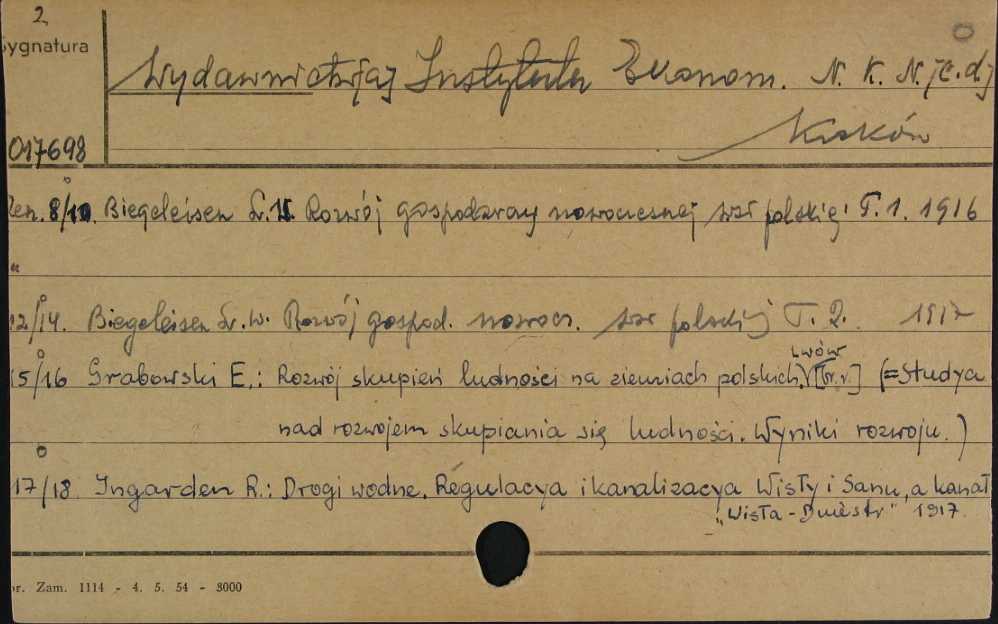 2
Sygnatura
Wydawnictwa Instytutu Ekonom. N. K. N. /c.d./
Kraków
017698
Zen. 8/10. Biegeleisen L. W. Rozwój gospodarczy nowoczesnej wsi polskiej T. 1. 1916
"
12/14. Biegeleisen L. W. Rozwój gospod. nowocz. wsi polskiej T. 2. 1917
15/16 Grabowski E.: Rozwój skupień ludności na ziemiach polskich. Lwów [br.r.] (= Studya
nad rozwojem skupiania się ludności. Wyniki rozwoju.)
17/18. Ingarden R.: Drogi wodne. Regulacya i kanalizacya Wisły i Sanu, a kanał
"Wisła - Dniestr" 1917.
or. Zam. 1114 - 4. 5. 54 - 3000